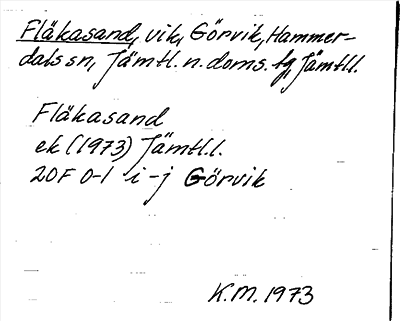 Fläkasand, vik, Görvik, Hammer-
dals sn, Jämtl. n. doms. fg, Jämtl.l.
Fläkasand
ek (1973) Jämtl.l.
20F 0-1 i-j Görvik
K.M. 1973